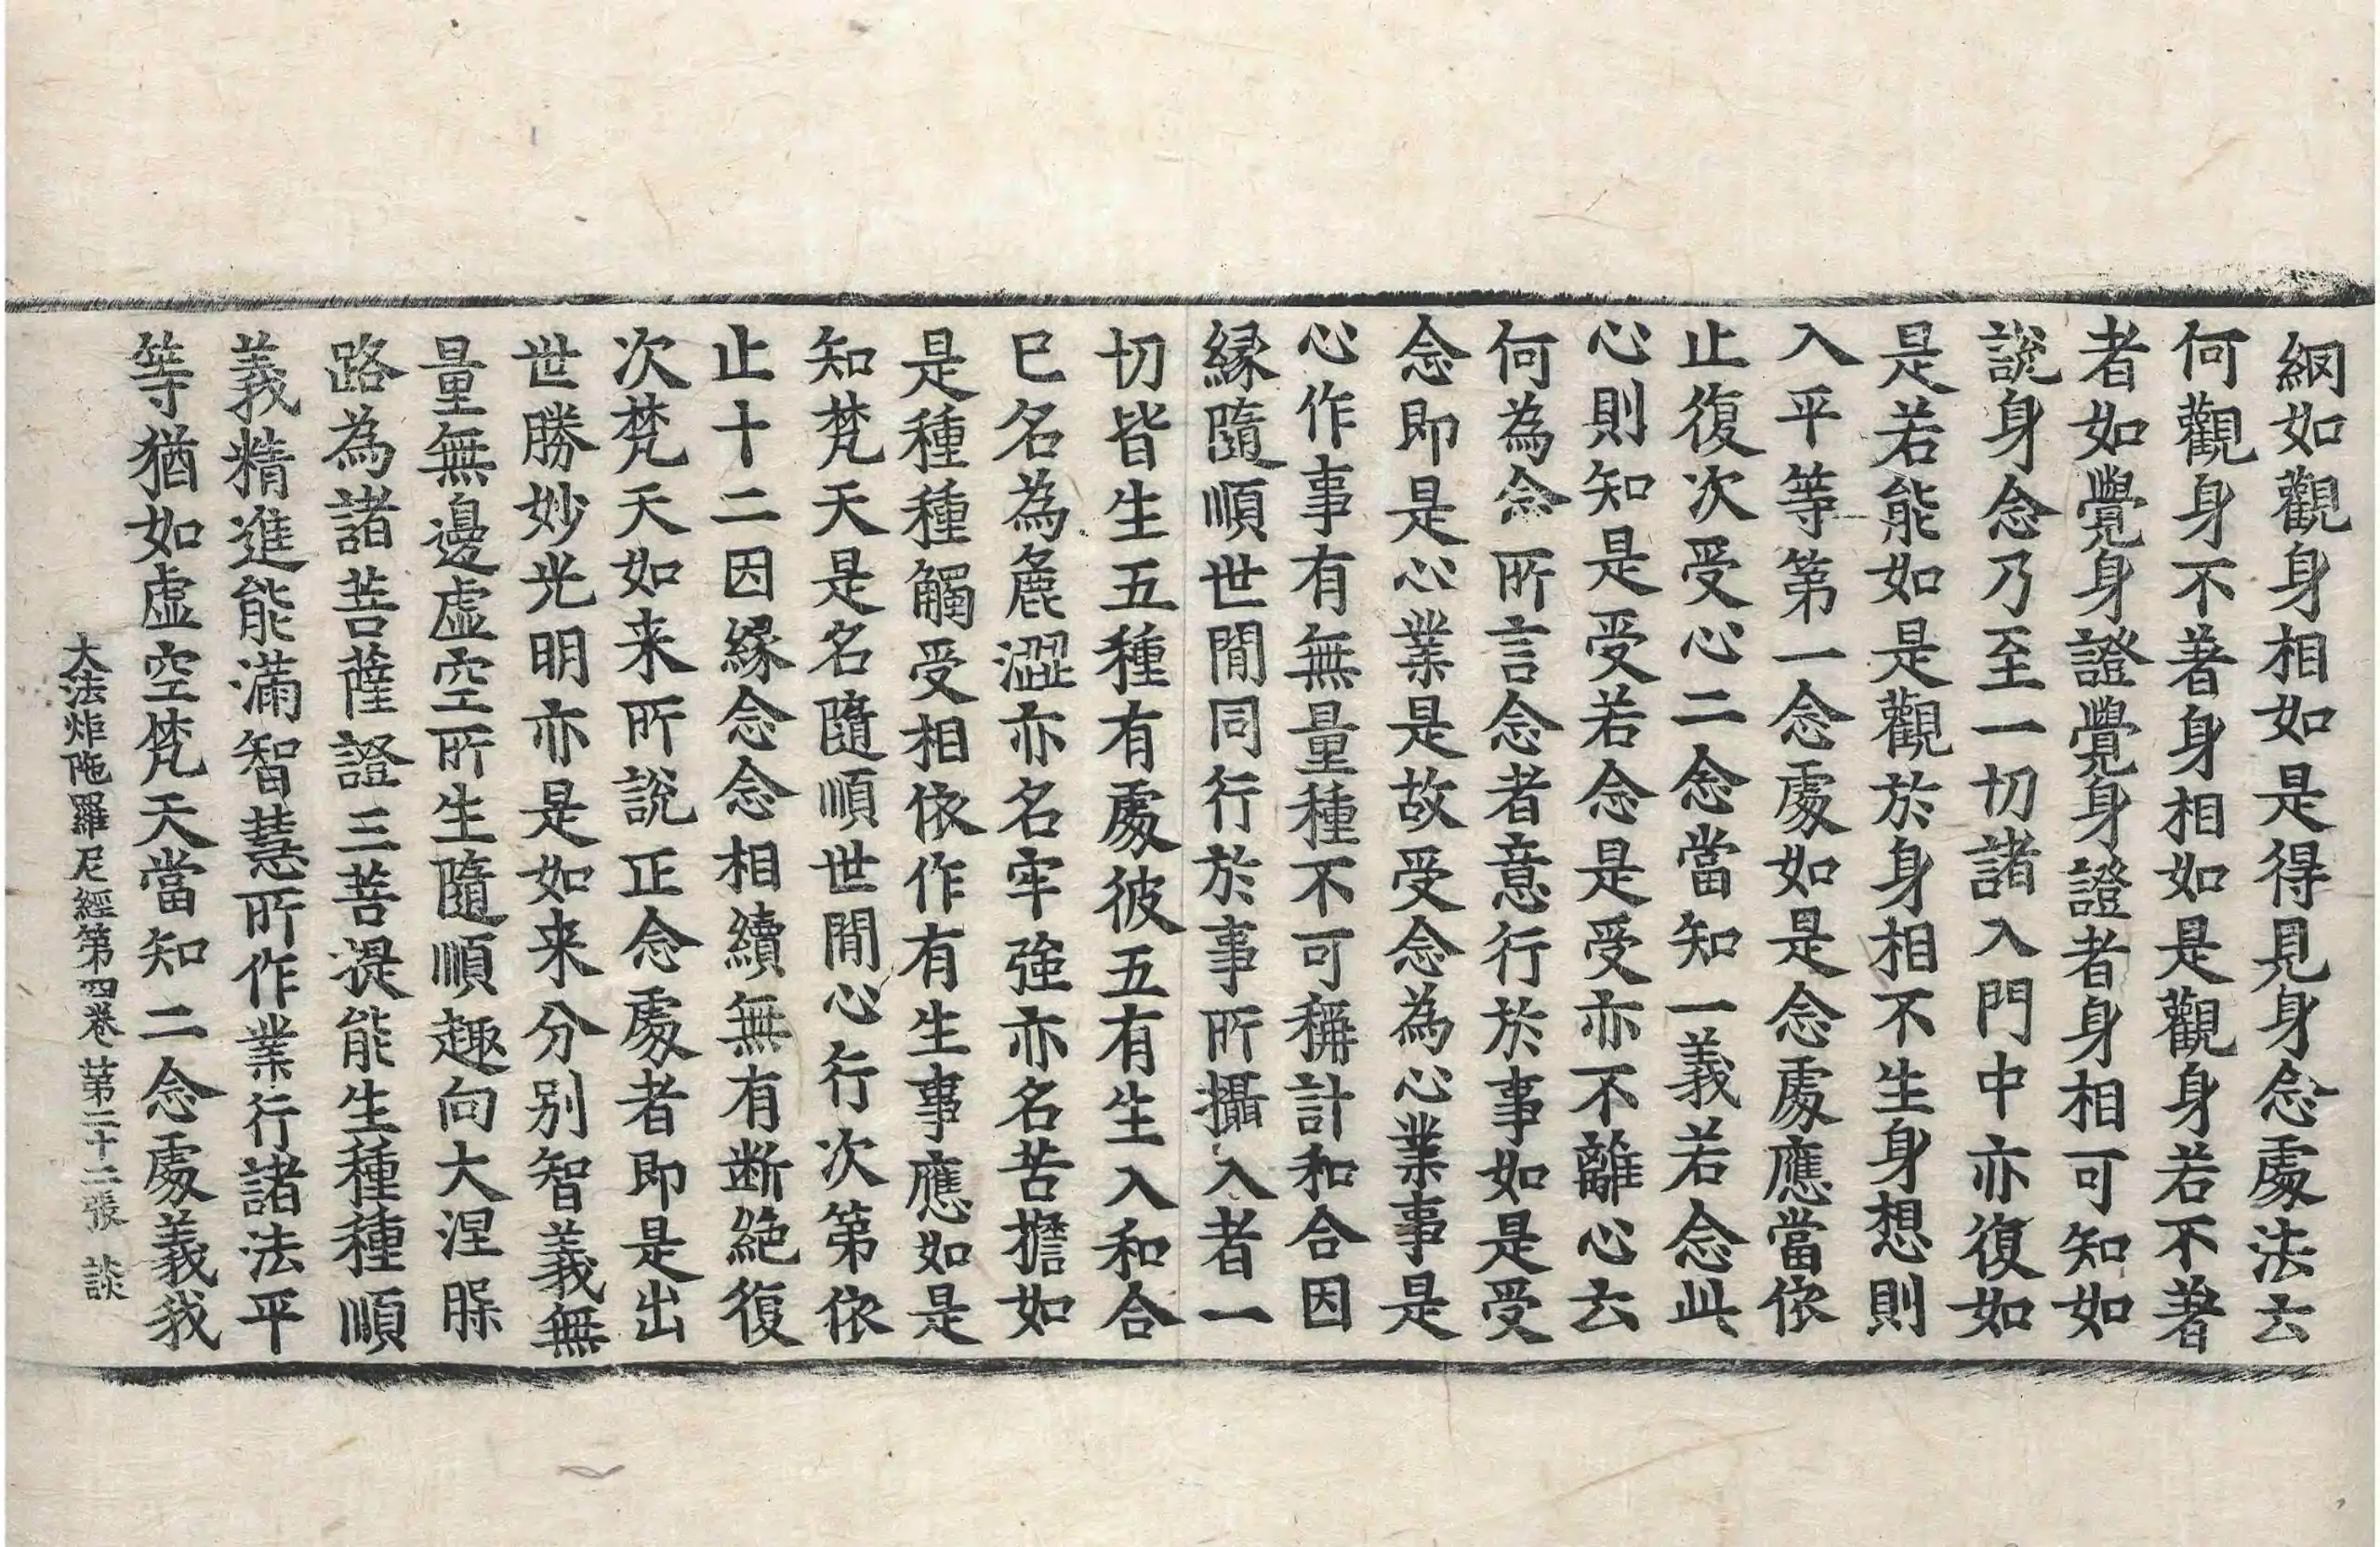 網如觀身相如是得見身念處法云
何觀身不著身相如是觀身若不著
者如覺身證覺身證者身相可知如
說身念乃至一切諸入門中亦復如
是若能如是觀於身相不生身想則
入平等第一念處如是念處應當依
止復次受心二念當知一義若念此
心則知是受若念是受亦不離心云
何為念所言念者意行於事如是受
念即是心業是故受念為心業事是
心作事有無量種不可稱計和合因
緣隨順世間同行於事所攝入者一
切皆生五種有處彼五有生入和合
已名為麁澀亦名牢強亦名苦擔如
是種種觸受相依作有生事應如是
知梵天是名隨順世間心行次第依
止十二因緣念念相續無有断絕復
次梵天如来所說正念處者即是出
世勝妙光明亦是如来分別智義無
量無邊虛空所生隨順趣向大涅槃
路為諸菩薩證三菩提能生種種順
義精進能滿智慧所作業行諸法平
等猶如虛空梵天當知二念處義我
大法炬陁羅尼經第四卷 第二十二張 談